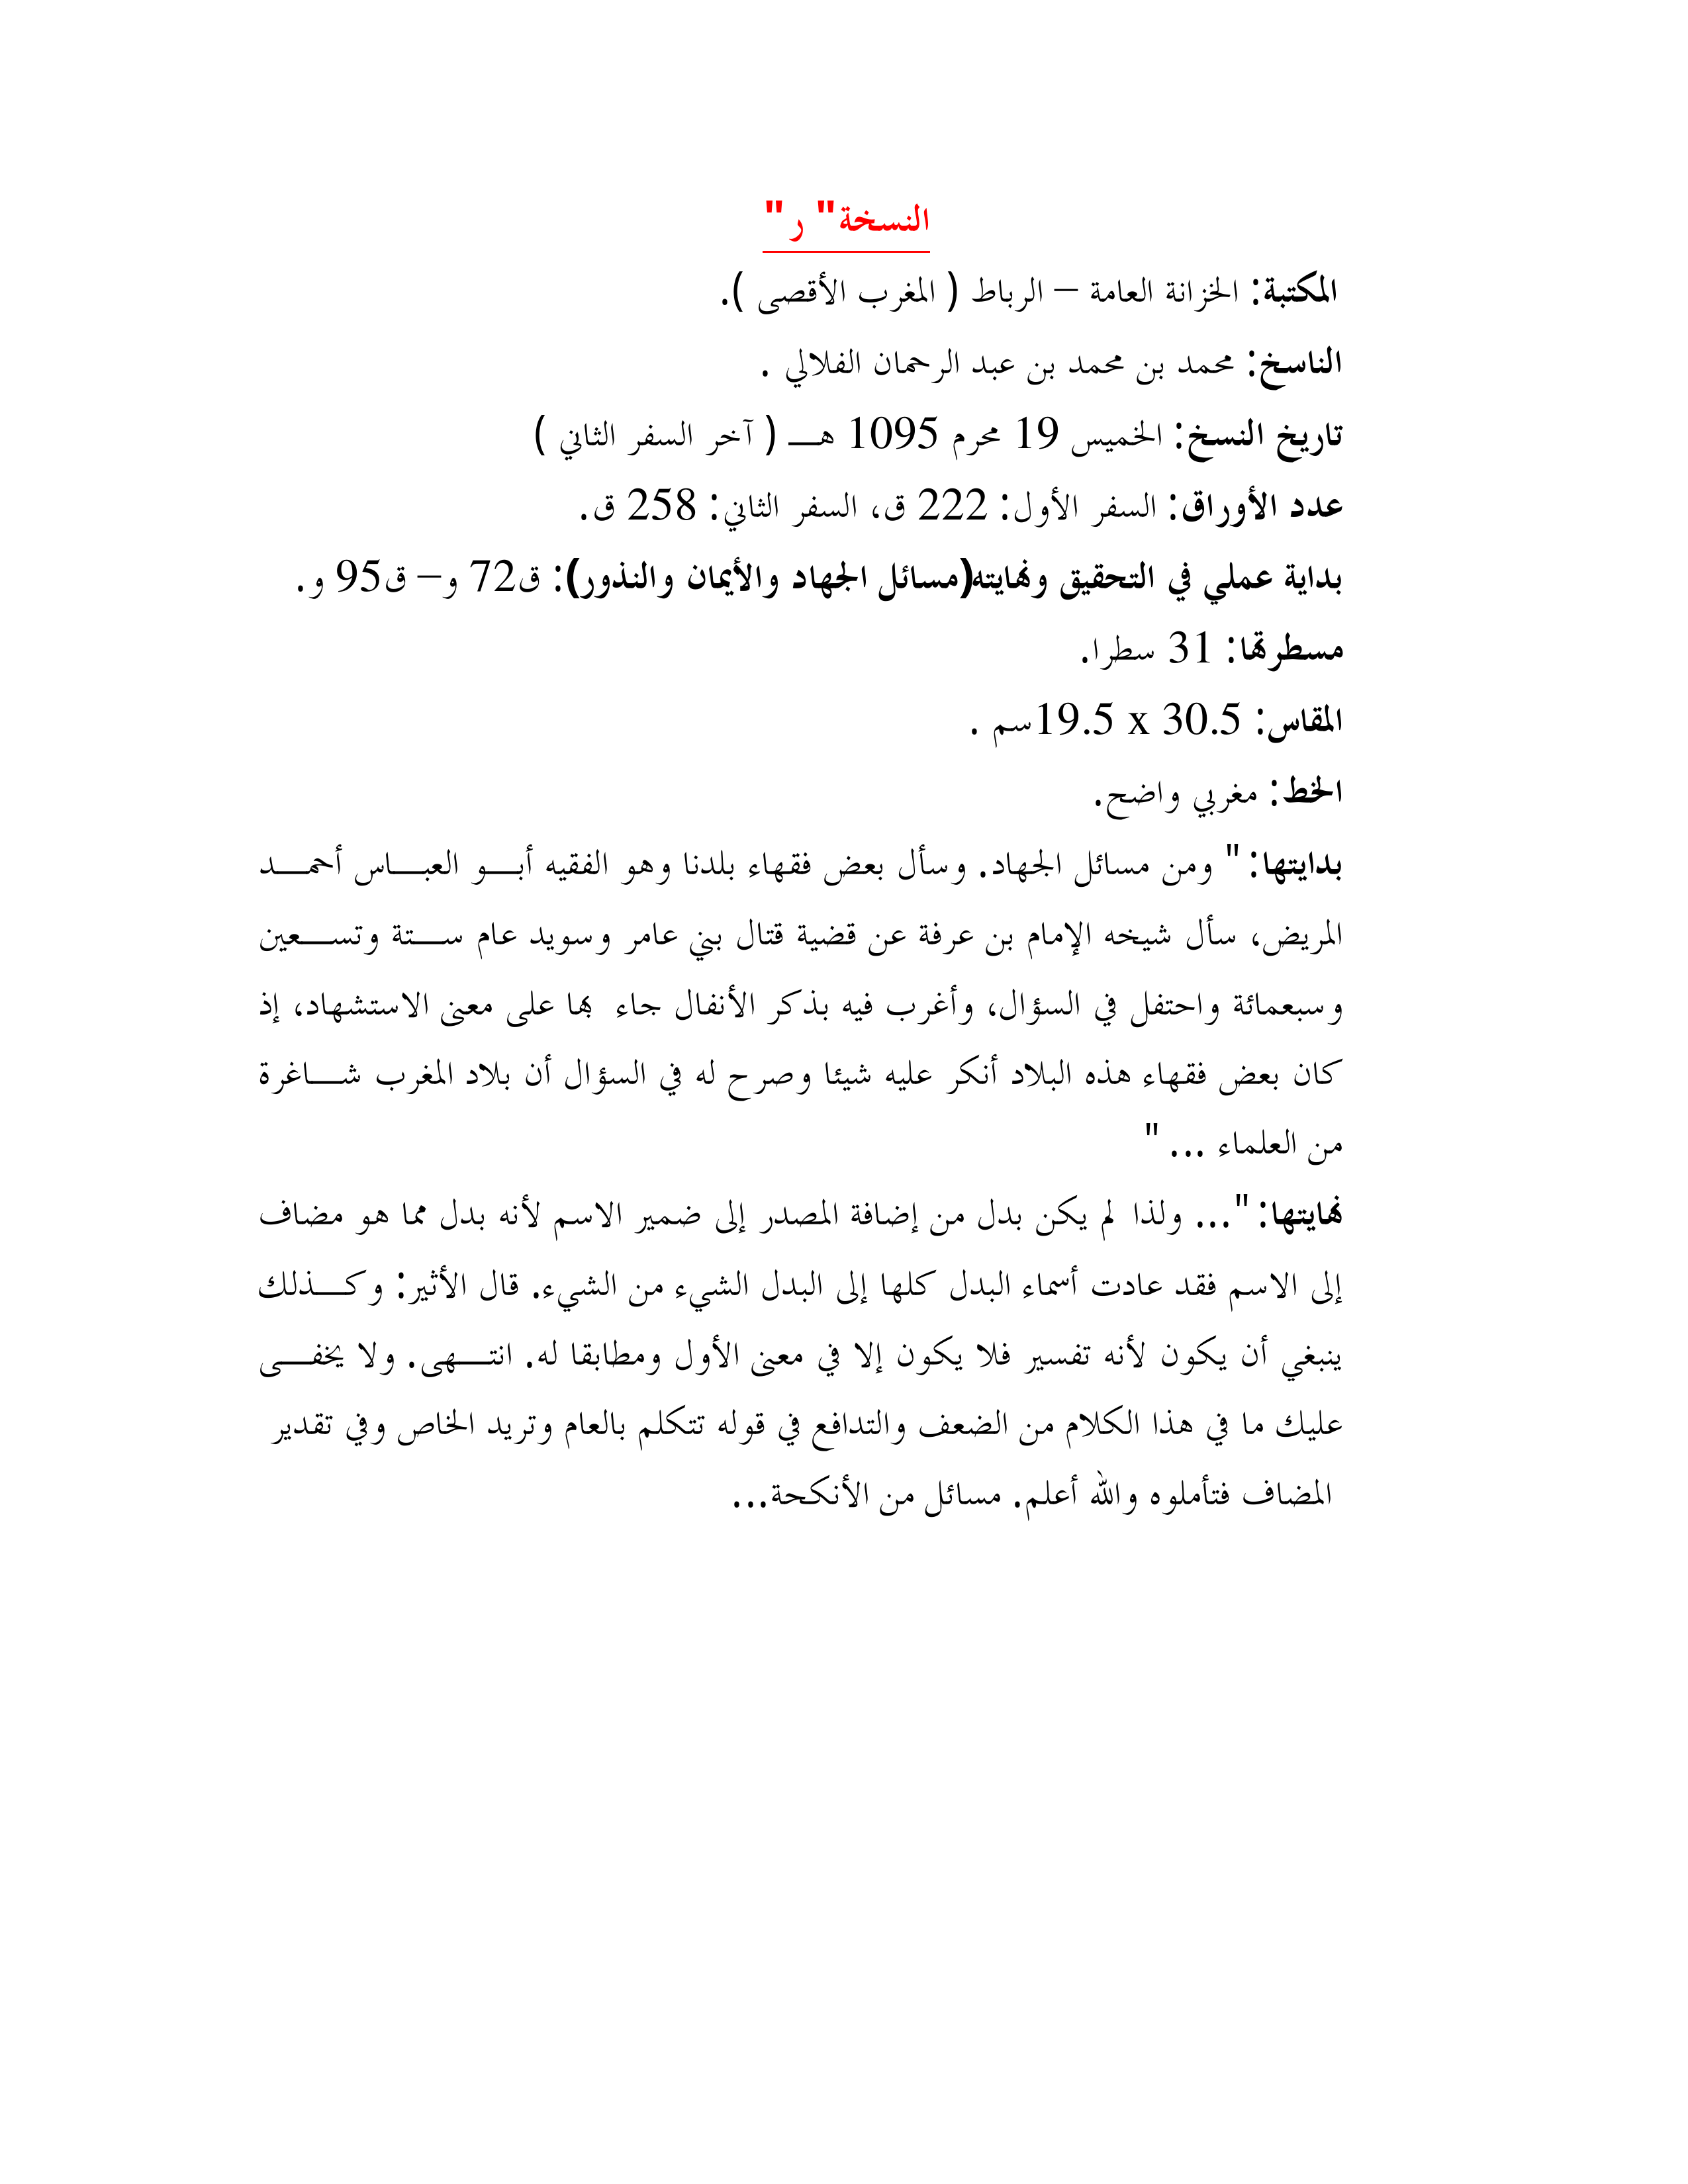 النسخة" ر"
المكتبة: الخزانة العامة – الرباط ( المغرب الأقصى ).
الناسخ: محمد بن محمد بن عبد الرحمان الفلالي .
تاريخ النسخ: الخميس 19 محرم 1095 هـ ( آخر السفر الثاني )
عدد الأوراق: السفر الأول: 222 ق، السفر الثاني: 258 ق.
بداية عملي في التحقيق ونهايته(مسائل الجهاد والأيمان والنذور): ق72 و– ق95 و.
مسطرتها: 31 سطرا.
المقاس: 30.5 x 19.5سم .
الخط: مغربي واضح.
بدايتها: " ومن مسائل الجهاد. وسأل بعض فقهاء بلدنا وهو الفقيه أبو العباس أحمد
المريض، سأل شيخه الإمام بن عرفة عن قضية قتال بني عامر وسويد عام ستة وتسعين
وسبعمائة واحتفل في السؤال، وأغرب فيه بذكر الأنفال جاء بها على معنى الاستشهاد، إذ
كان بعض فقهاء هذه البلاد أنكر عليه شيئا وصرح له في السؤال أن بلاد المغرب شاغرة
من العلماء ... "
نهايتها: "... ولذا لم يكن بدل من إضافة المصدر إلى ضمير الاسم لأنه بدل مما هو مضاف
إلى الاسم فقد عادت أسماء البدل كلها إلى البدل الشيء من الشيء. قال الأثير: وكذلك
ينبغي أن يكون لأنه تفسير فلا يكون إلا في معنى الأول ومطابقا له. انتهى. ولا يخفى
عليك ما في هذا الكلام من الضعف والتدافع في قوله تتكلم بالعام وتريد الخاص وفي تقدير
المضاف فتأملوه والله أعلم. مسائل من الأنكحة...